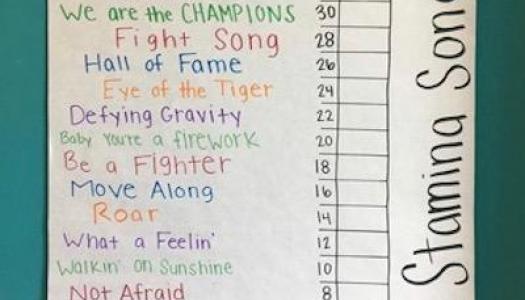 We are the CHAMPIONS 30
Fight Song 28
Hall of Fame 26
Eye of the Tiger 24
Defying Gravity 22
Baby You're a fireWORK 20
Be a Fighter 18
Move Along 16
Roar 14
What a Feelin' 12
Walkin' on Sunshine 10
Not Afraid 8
Staming Son